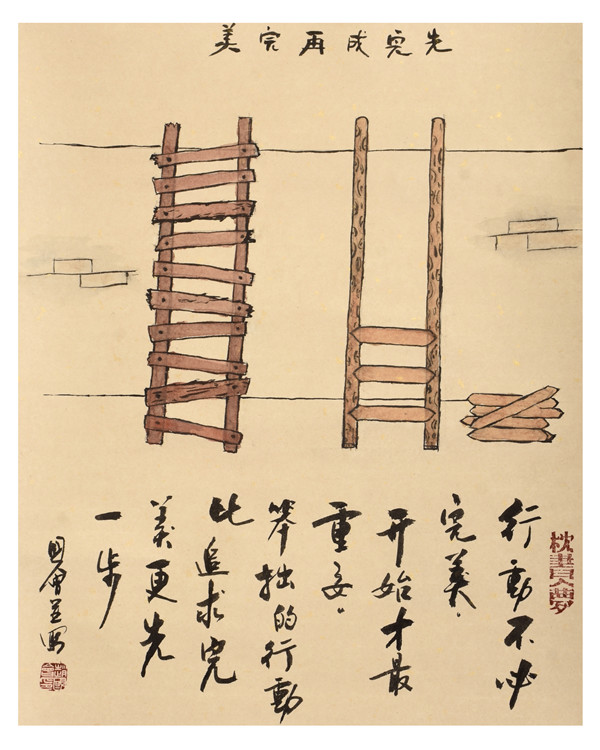 先完成再完美
行動不必
完美。
开始才最
重要。
笨拙的行動
比追求完
美更先
一步